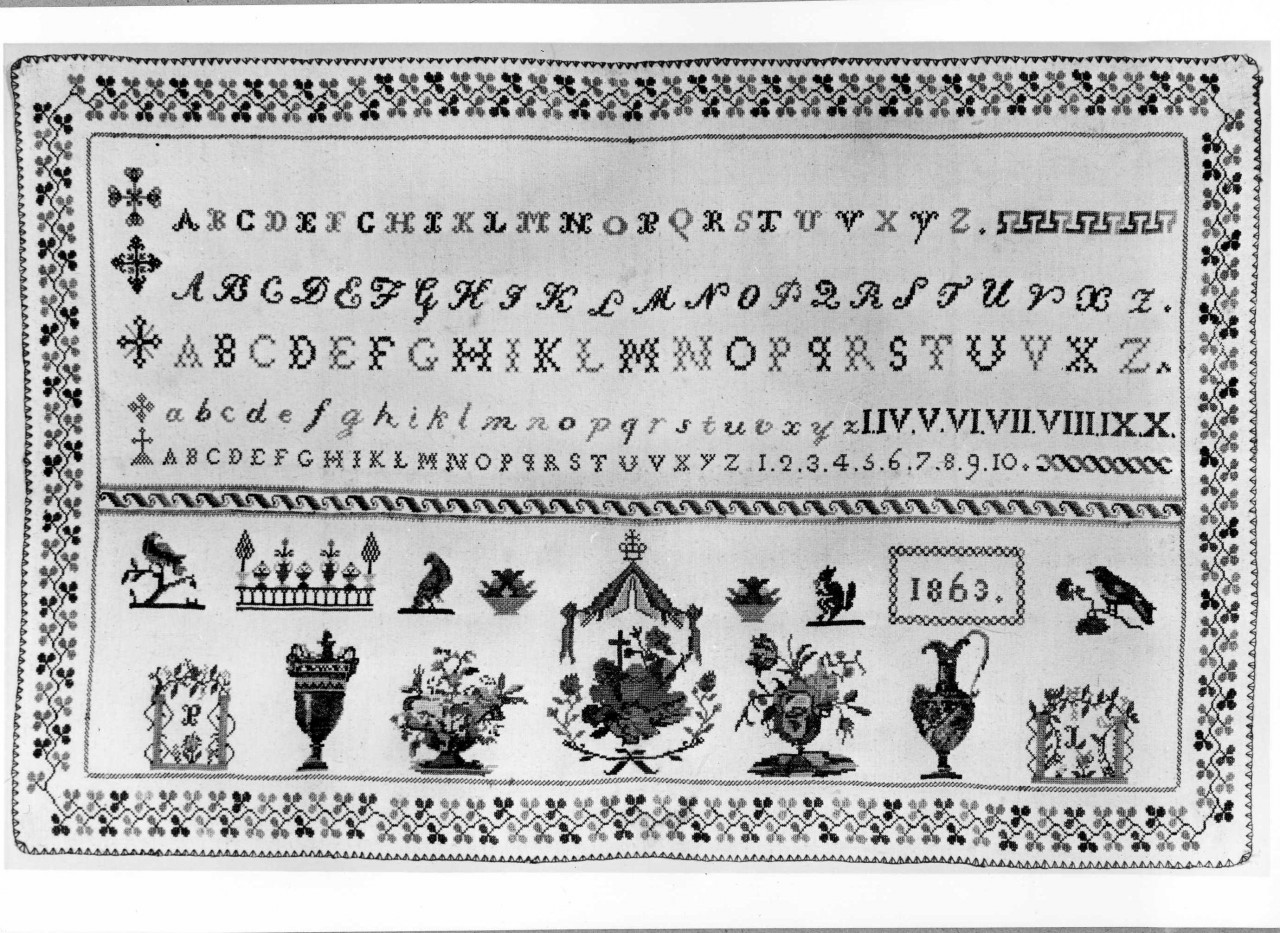 A B C D E F G H I K L M N O P Q R S T U V X Y Z.
A B C D E F G H I K L M N O P Q R S T U V X Z.
A B C D E F G H I K L M N O P q R S T U V X Z.
a b c d e f g h i k l m n o p q r s t u v x y z I.IV.V.VI.VII.VIII.IX.X.
A B C D E F G H I K L M N O P q R S T U V X Y Z 1.2.3.4.5.6.7.8.9.10.
1863.
P
L